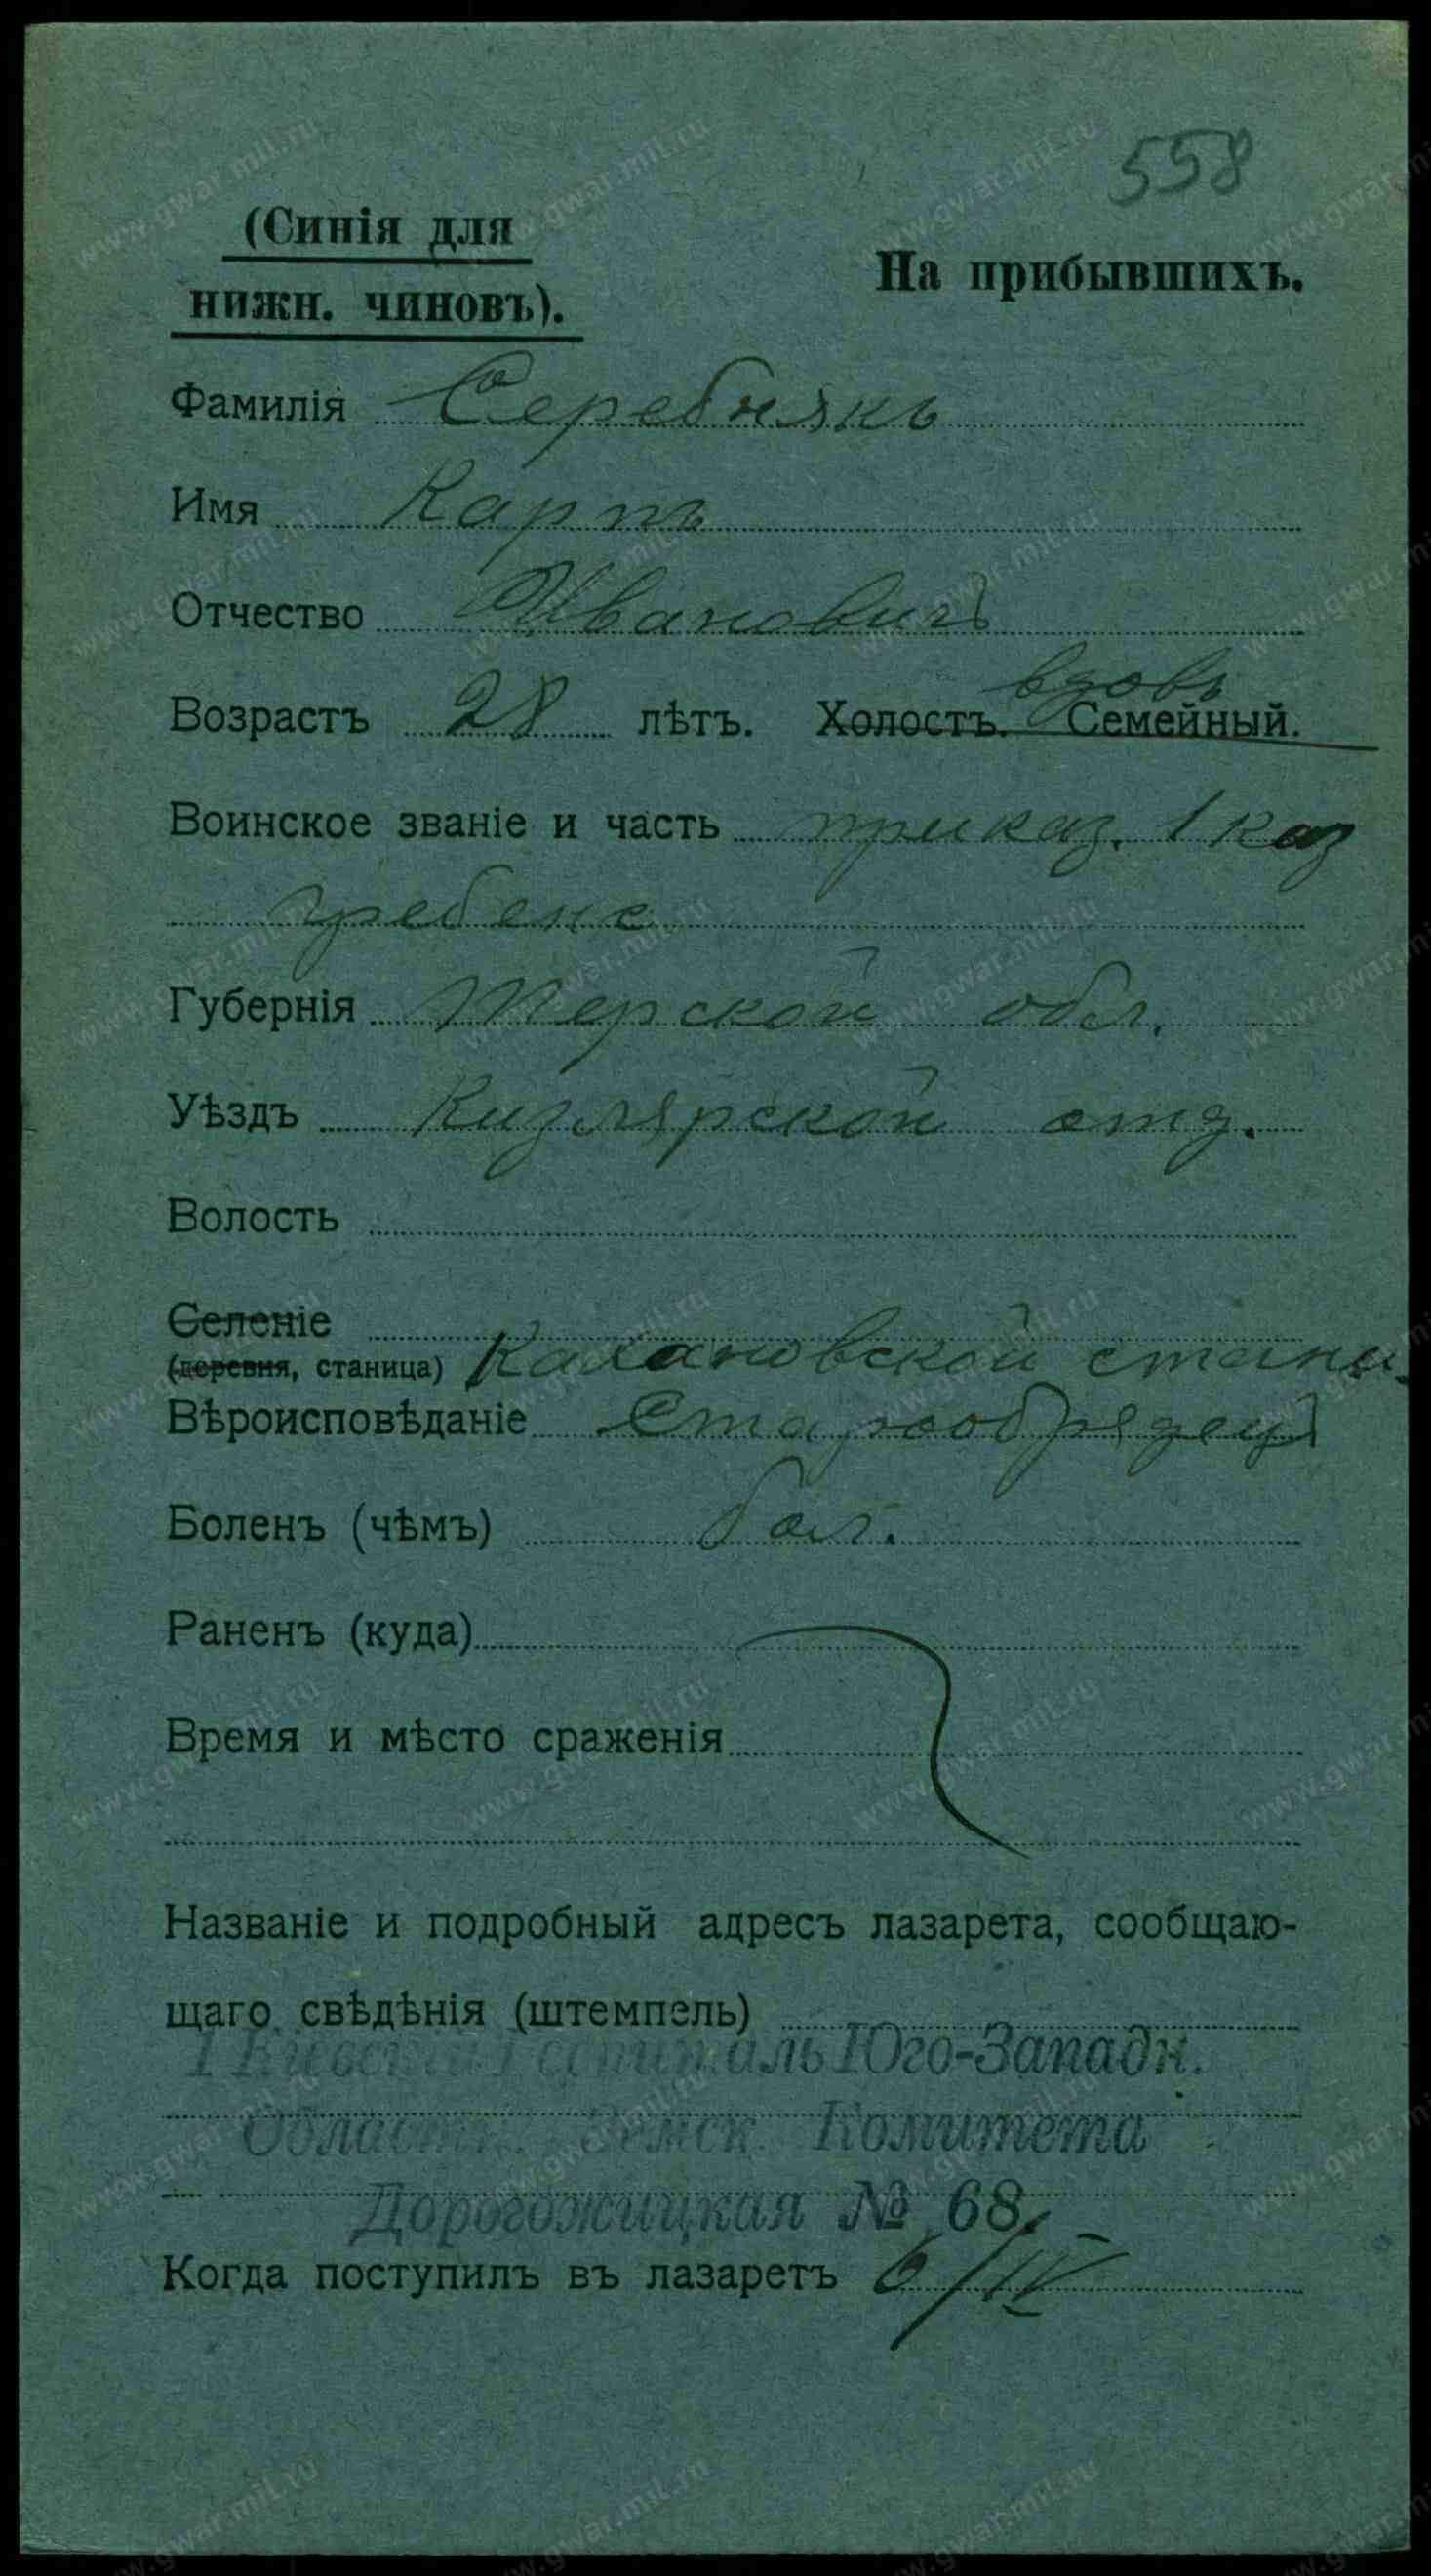 558
(Синія для
нижн. чиновъ).
На прибывшихъ.
Фамилія Серебнякъ
Имя Карпъ
Отчество Ивановичъ
вдовъ
Возрастъ 28 лѣтъ. Холостъ. Семейный.
Воинское званіе и часть приказ. 1 каз
гребенс
Губернія Терской обл.
Уѣздъ Кизлярской отд.
Волость
Селеніе
(деревня, станица) Кахановской стани.
Вѣроисповѣданіе Старообрядецъ
Боленъ (чѣмъ) бол.
Раненъ (куда)
Время и мѣсто сраженія
Названіе и подробный адресъ лазарета, сообщаю-
щаго свѣдѣнія (штемпель)
1 Кіевскій Госпиталь Юго-Западн.
Областн. Земск. Комитета
Дорогожицкая № 68.
Когда поступилъ въ лазаретъ 6/IV
www.gwar.mil.ru